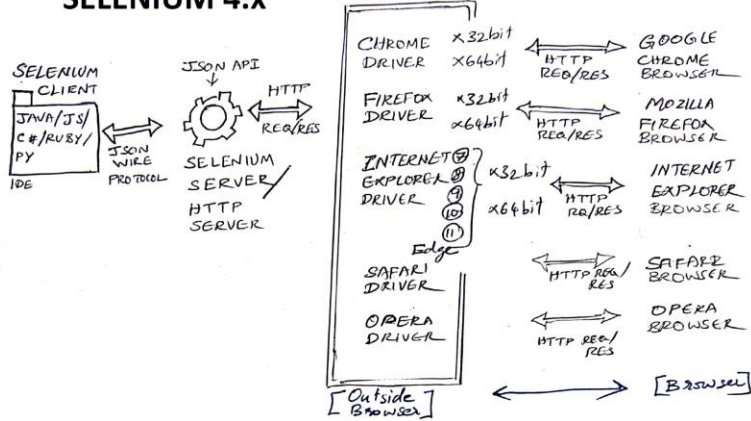 SELENIUM 4.x
SELENIUM
CLIENT
JAVA/JS/
C#/RUBY/
PY
IDE
JSON
WIRE
PROTOCOL
JSON API
SELENIUM
SERVER/
HTTP
SERVER
HTTP
REQ/RES
CHROME x32bit
DRIVER x64bit
HTTP
REQ/RES
GOOGLE
CHROME
BROWSER
FIREFOX x32bit
DRIVER x64bit
HTTP
REQ/RES
MOZILLA
FIREFOX
BROWSER
INTERNET 7
EXPLORER 8
DRIVER 9
10
11
Edge
x32bit
x64bit
HTTP
RQ/RES
INTERNET
EXPLORER
BROWSER
SAFARI
DRIVER
HTTP REQ/
RES
SAFARI
BROWSER
OPERA
DRIVER
HTTP REQ/
RES
OPERA
BROWSER
[Outside
Browser]
[Browser]